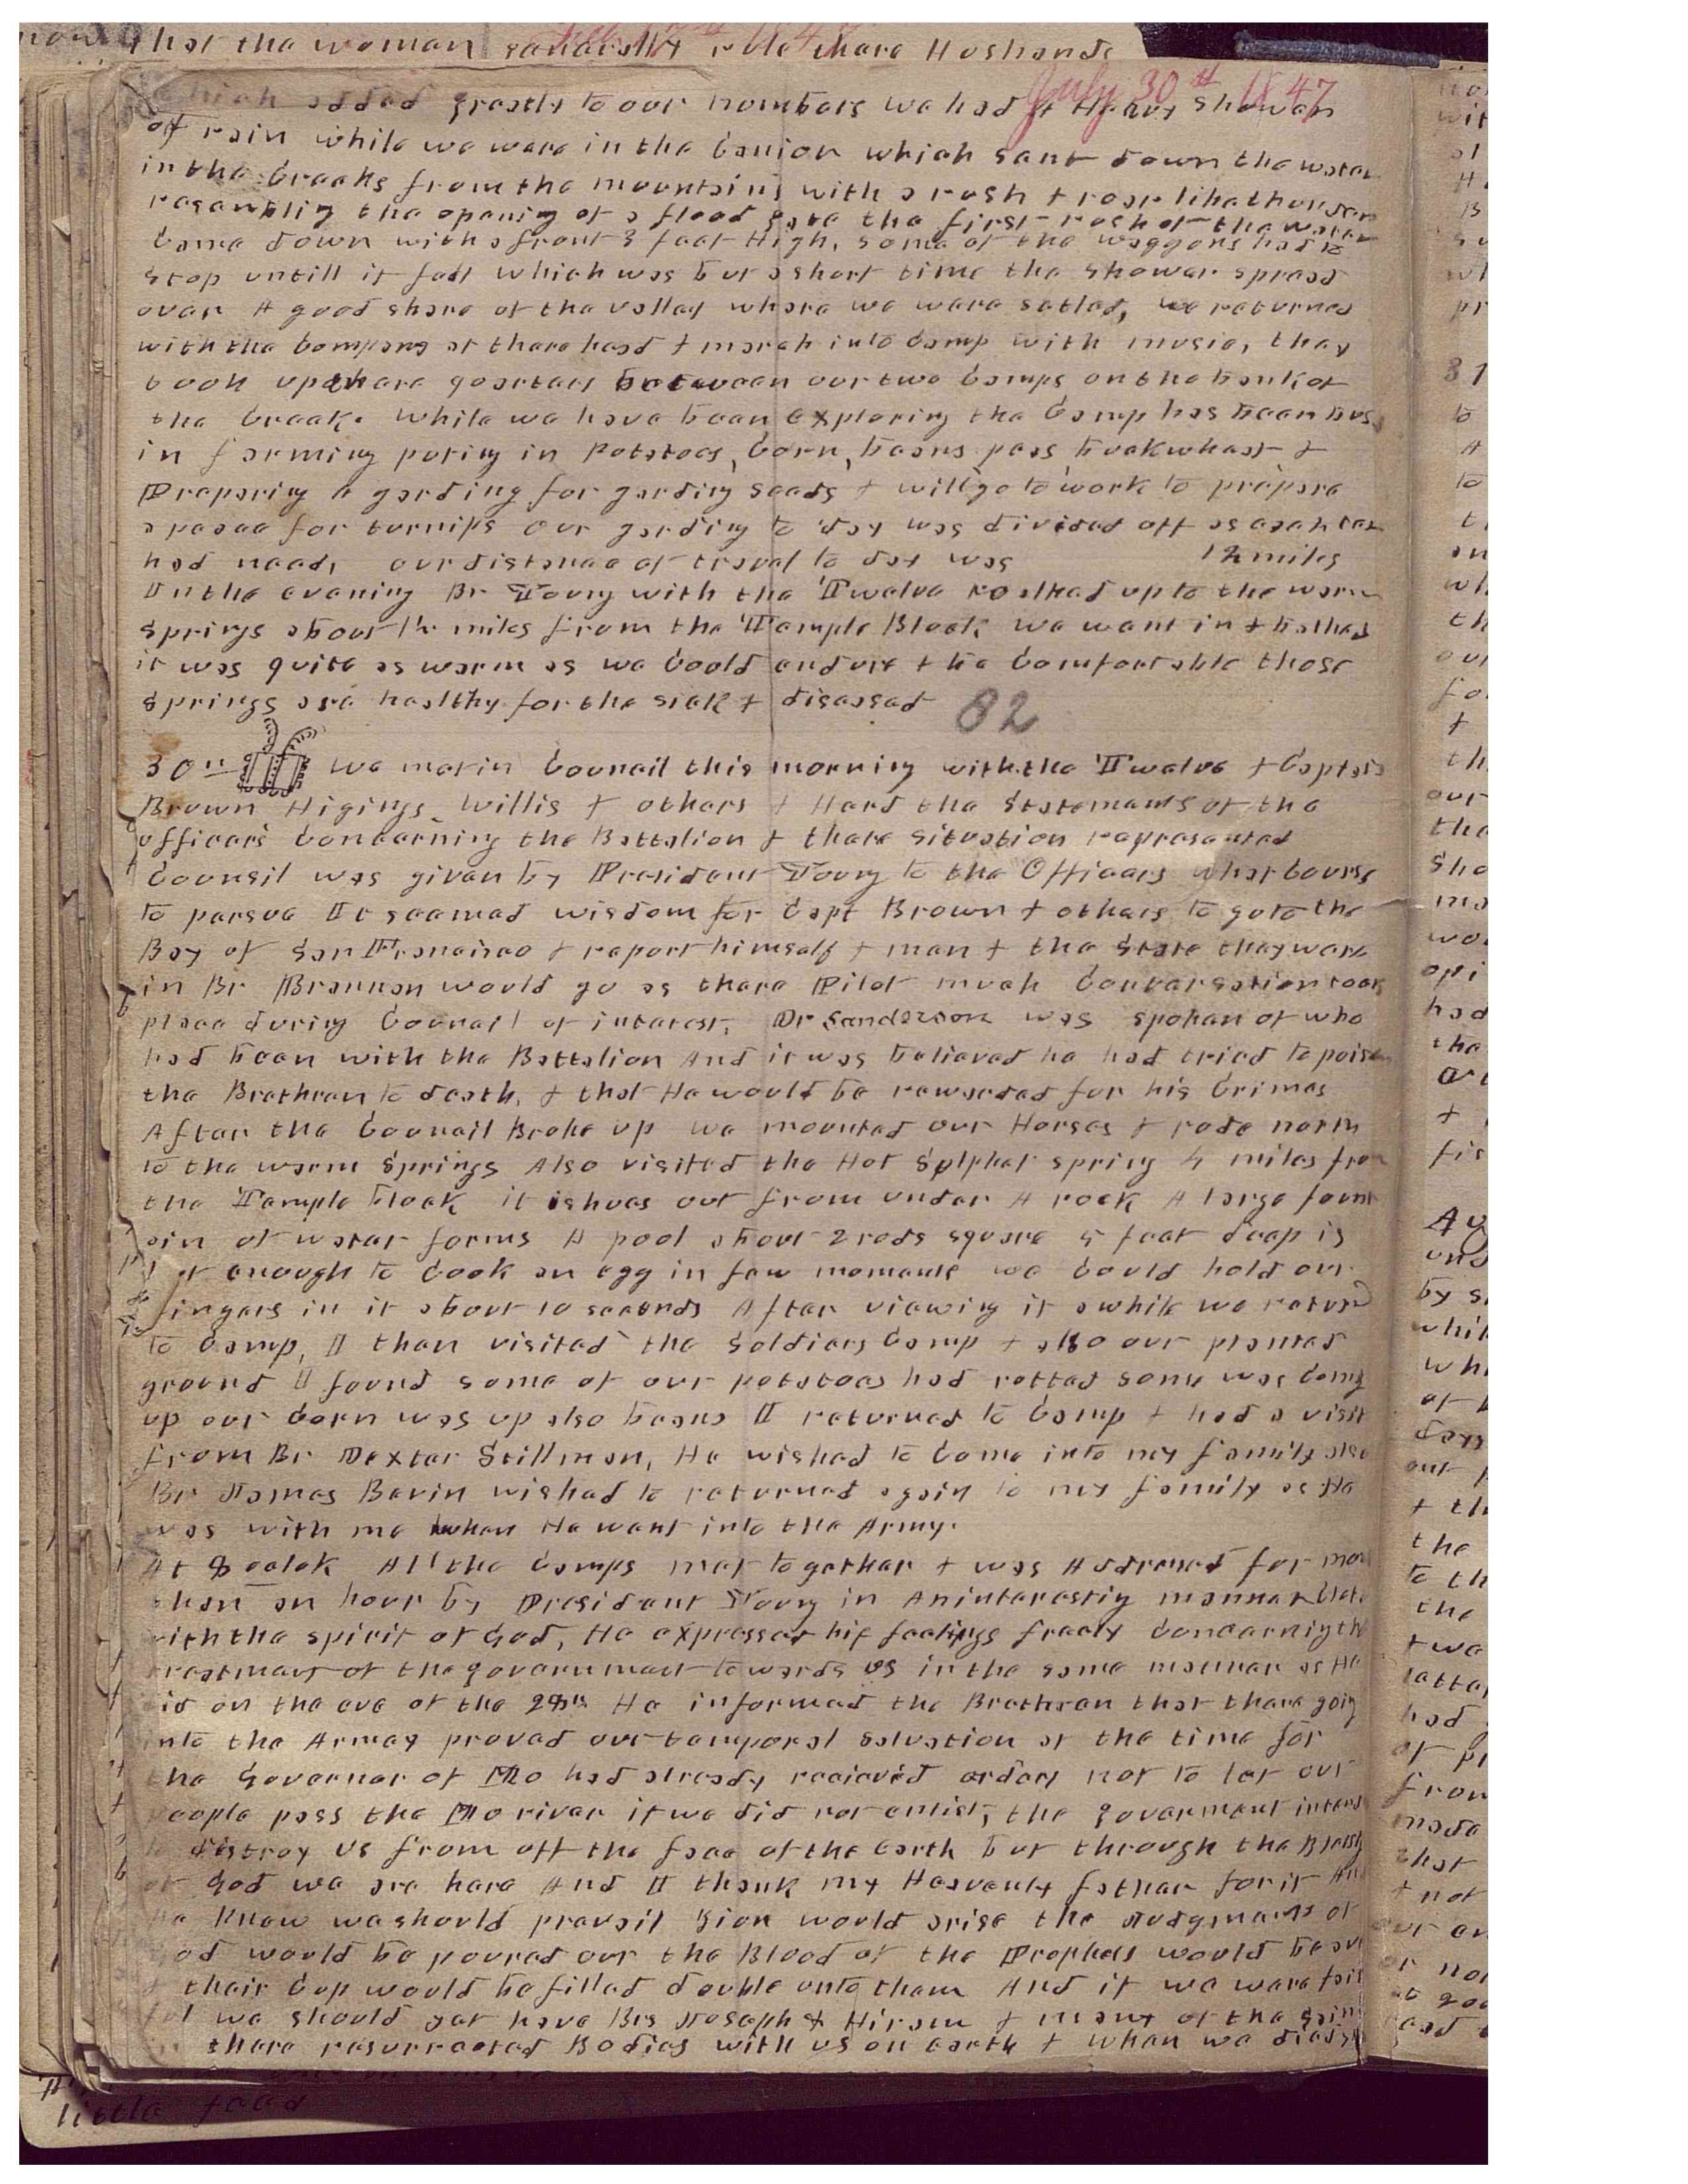 that the woman generally rule there Husbands
July 30th 1847
which added greatly to our numbers we had A Heavy Shower
of rain while we were in the Canion which sent down the water
in the Creeks from the mountains with a rush & roar like thunder
resembling the opening of a flood gate the first rush of the water
Came down with a front 3 feet High, some of the waggons had to
stop untill it fell which was but a short time the shower spread
over A good share of the valley where we ware setled, we returned
with the Company at there head & march into Camp with music, they
took up there quarters between our two Camps on the bank of
the Creek. While we have been exploring the Camp has been busy
in farming puting in Potatoes, Corn, beans peas buckwheat &
Preparing A garding for garding seeds & will go to work to prepare
a peace for turnips our garding to day was divided off as each ten
had need, our distance of travel to day was 12 miles
In the evening Br Young with the Twelve walked up to the warm
springs about 1½ miles from the Temple Block we went in & bathed
it was quite as warm as we Could endure & be Comfortable those
springs are healthy for the sick & diseased 82
30th We met in Council this morning with the Twelve & Captain
Brown Higings Willis & others & Hard the statements of the
officers Concerning the Battalion & there situation represented
Council was given by President Young to the Officers what Course
to persue It seemed wisdom for Capt Brown & others to go to the
Bay of San Francisco & report himself & men & the State they ware
in Br Brannan would go as there Pilot much Conversation took
place during Council of interest, Dr Sanderson was spoken of who
had been with the Battalion And it was believed he had tried to poison
the Brethren to death, & that He would be rewarded for his Crimes
After the Council Broke up we mounted our Horses & rode north
to the warm Springs Also visited the Hot Sulphur spring 4 miles from
the Temple block it ishues out from under A rock A large fount
ain of water forms A pool about 2 rods square 5 feet deep is
hot enough to Cook an egg in few moments we Could hold our
fingers in it about 10 seconds After viewing it awhile we returned
to Camp, I then visited the Soldiers Camp & also our planted
ground I found some of our potatoes had rotted some was Coming
up our Corn was up also beans I returned to Camp & had a visit
from Br Dexter Stillman, He wished to Come into my family also
Br James Bevin wished to returned again to my family as He
was with me when He went into the Army.
At 8 oclok All the Camps met together & was Addressed for more
than an hour by President Young in An interesting manner
with the spirit of God, He expresses his feelings freely Concerning the
treatment of the government towards us in the same manner as He
did on the eve of the 28th He informed the Brethren that there going
into the Armey proved our temporal salvation at the time for
the Governor of Mo had already recieved orders not to let our
people pass the Mo river if we did not enlist, the goverment intend
to destroy us from off the face of the Earth but through the Blessing
of God we are here And I thank my Heavenly father for it And
he knew we should prevail Zion would arise the Judgments of
God would be poured out the Blood of the Prophets would be
& their Cup would be filled double unto them And if we ware faith
ful we should yet have Brs Joseph & Hiram & many of the Saints
there resurrected Bodies with us on earth & when we
little food